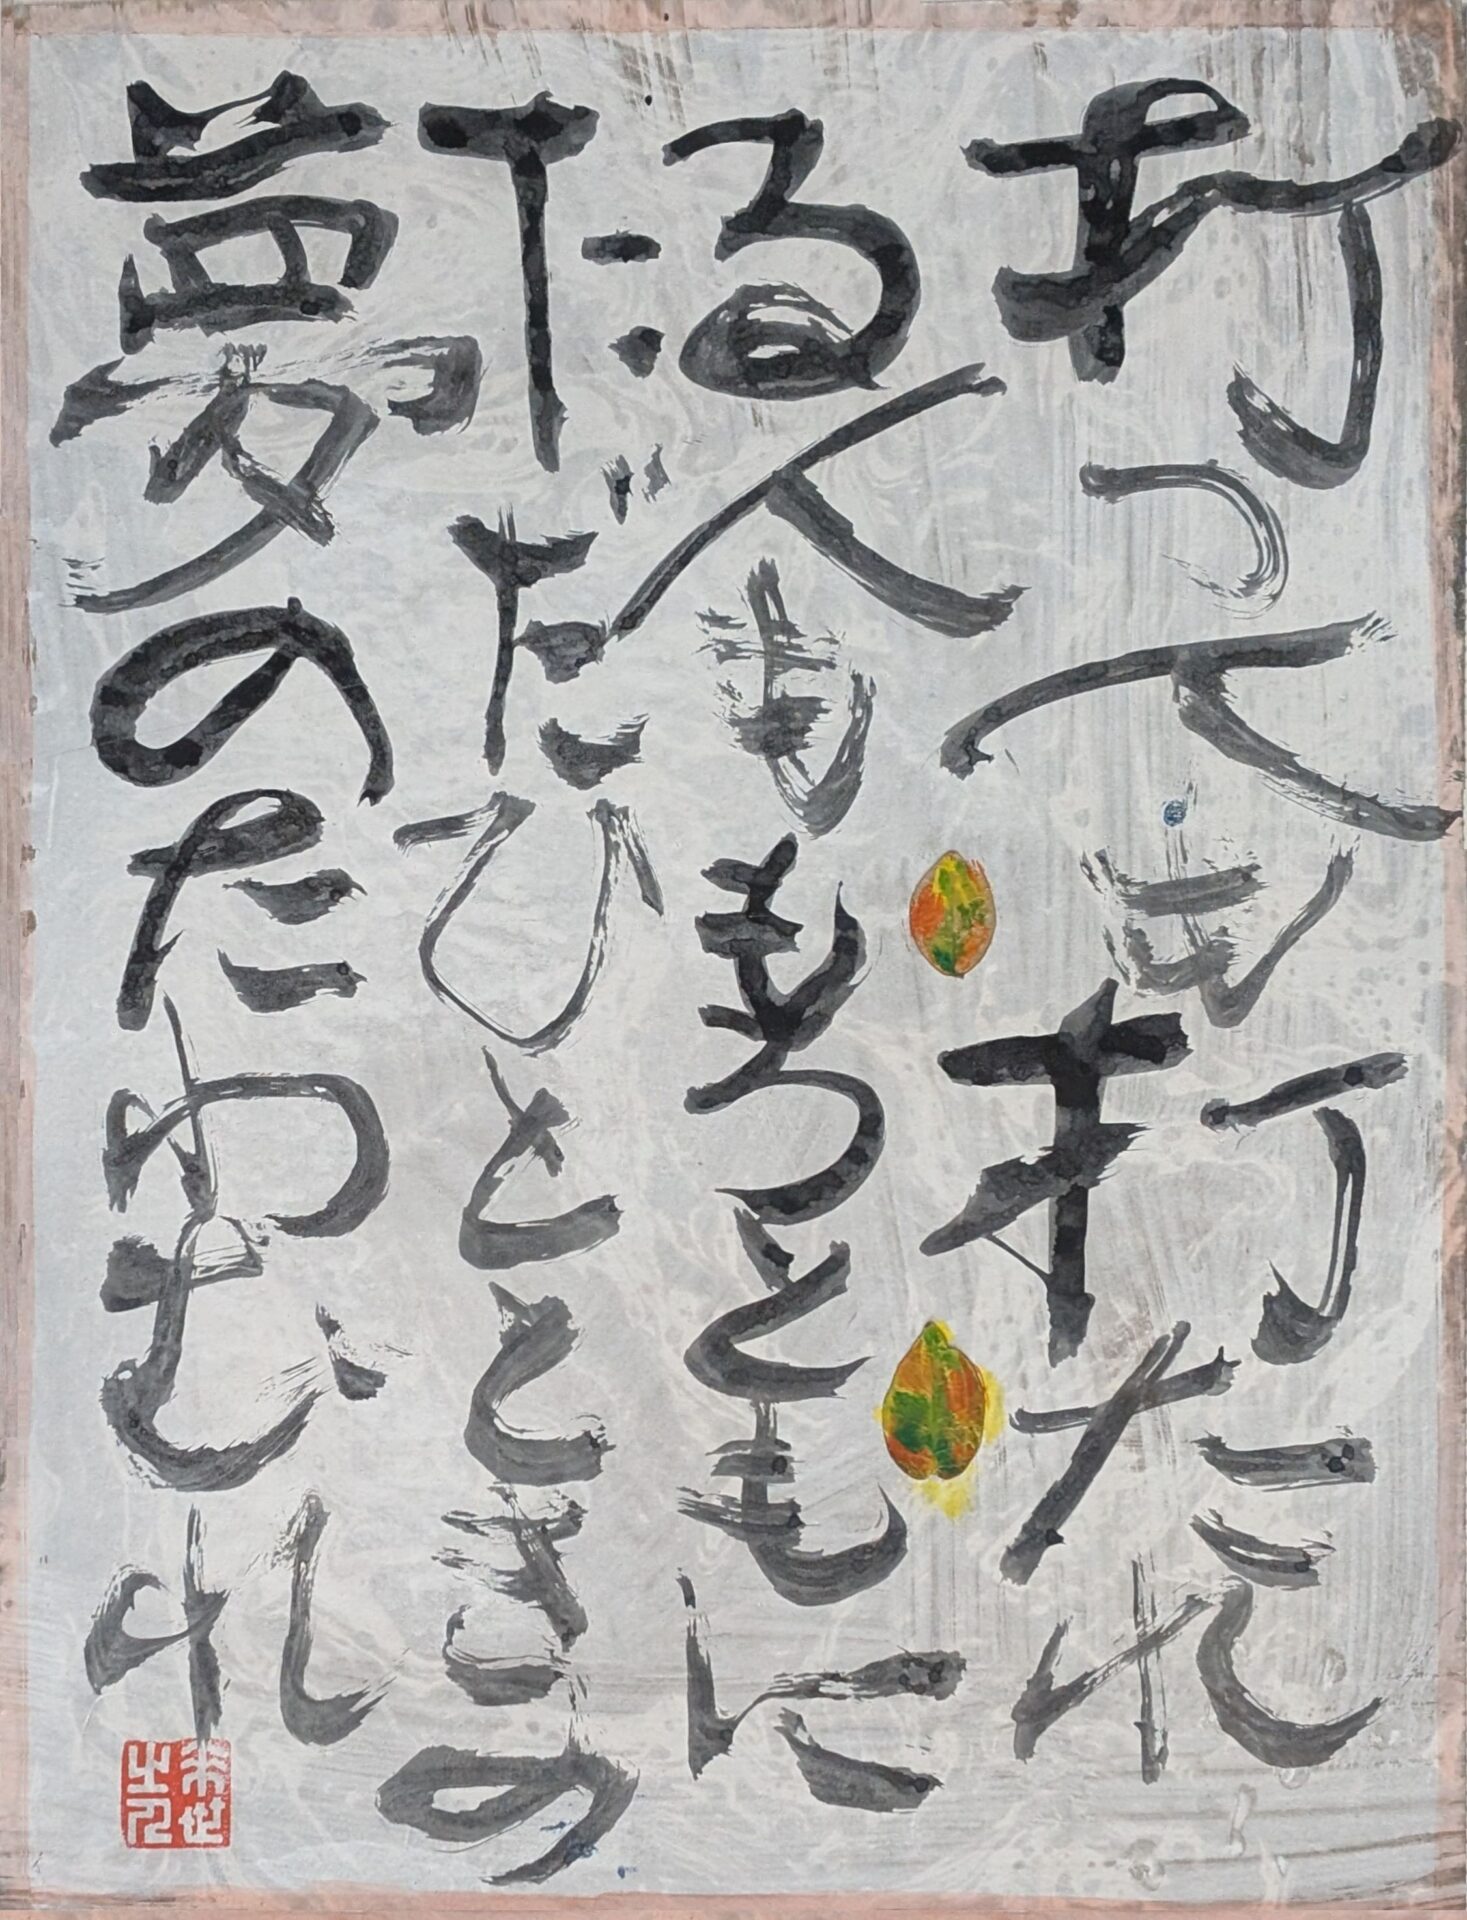 打つ人も打たれ
る人ももろともに
ただひとときの
夢のたわむれ